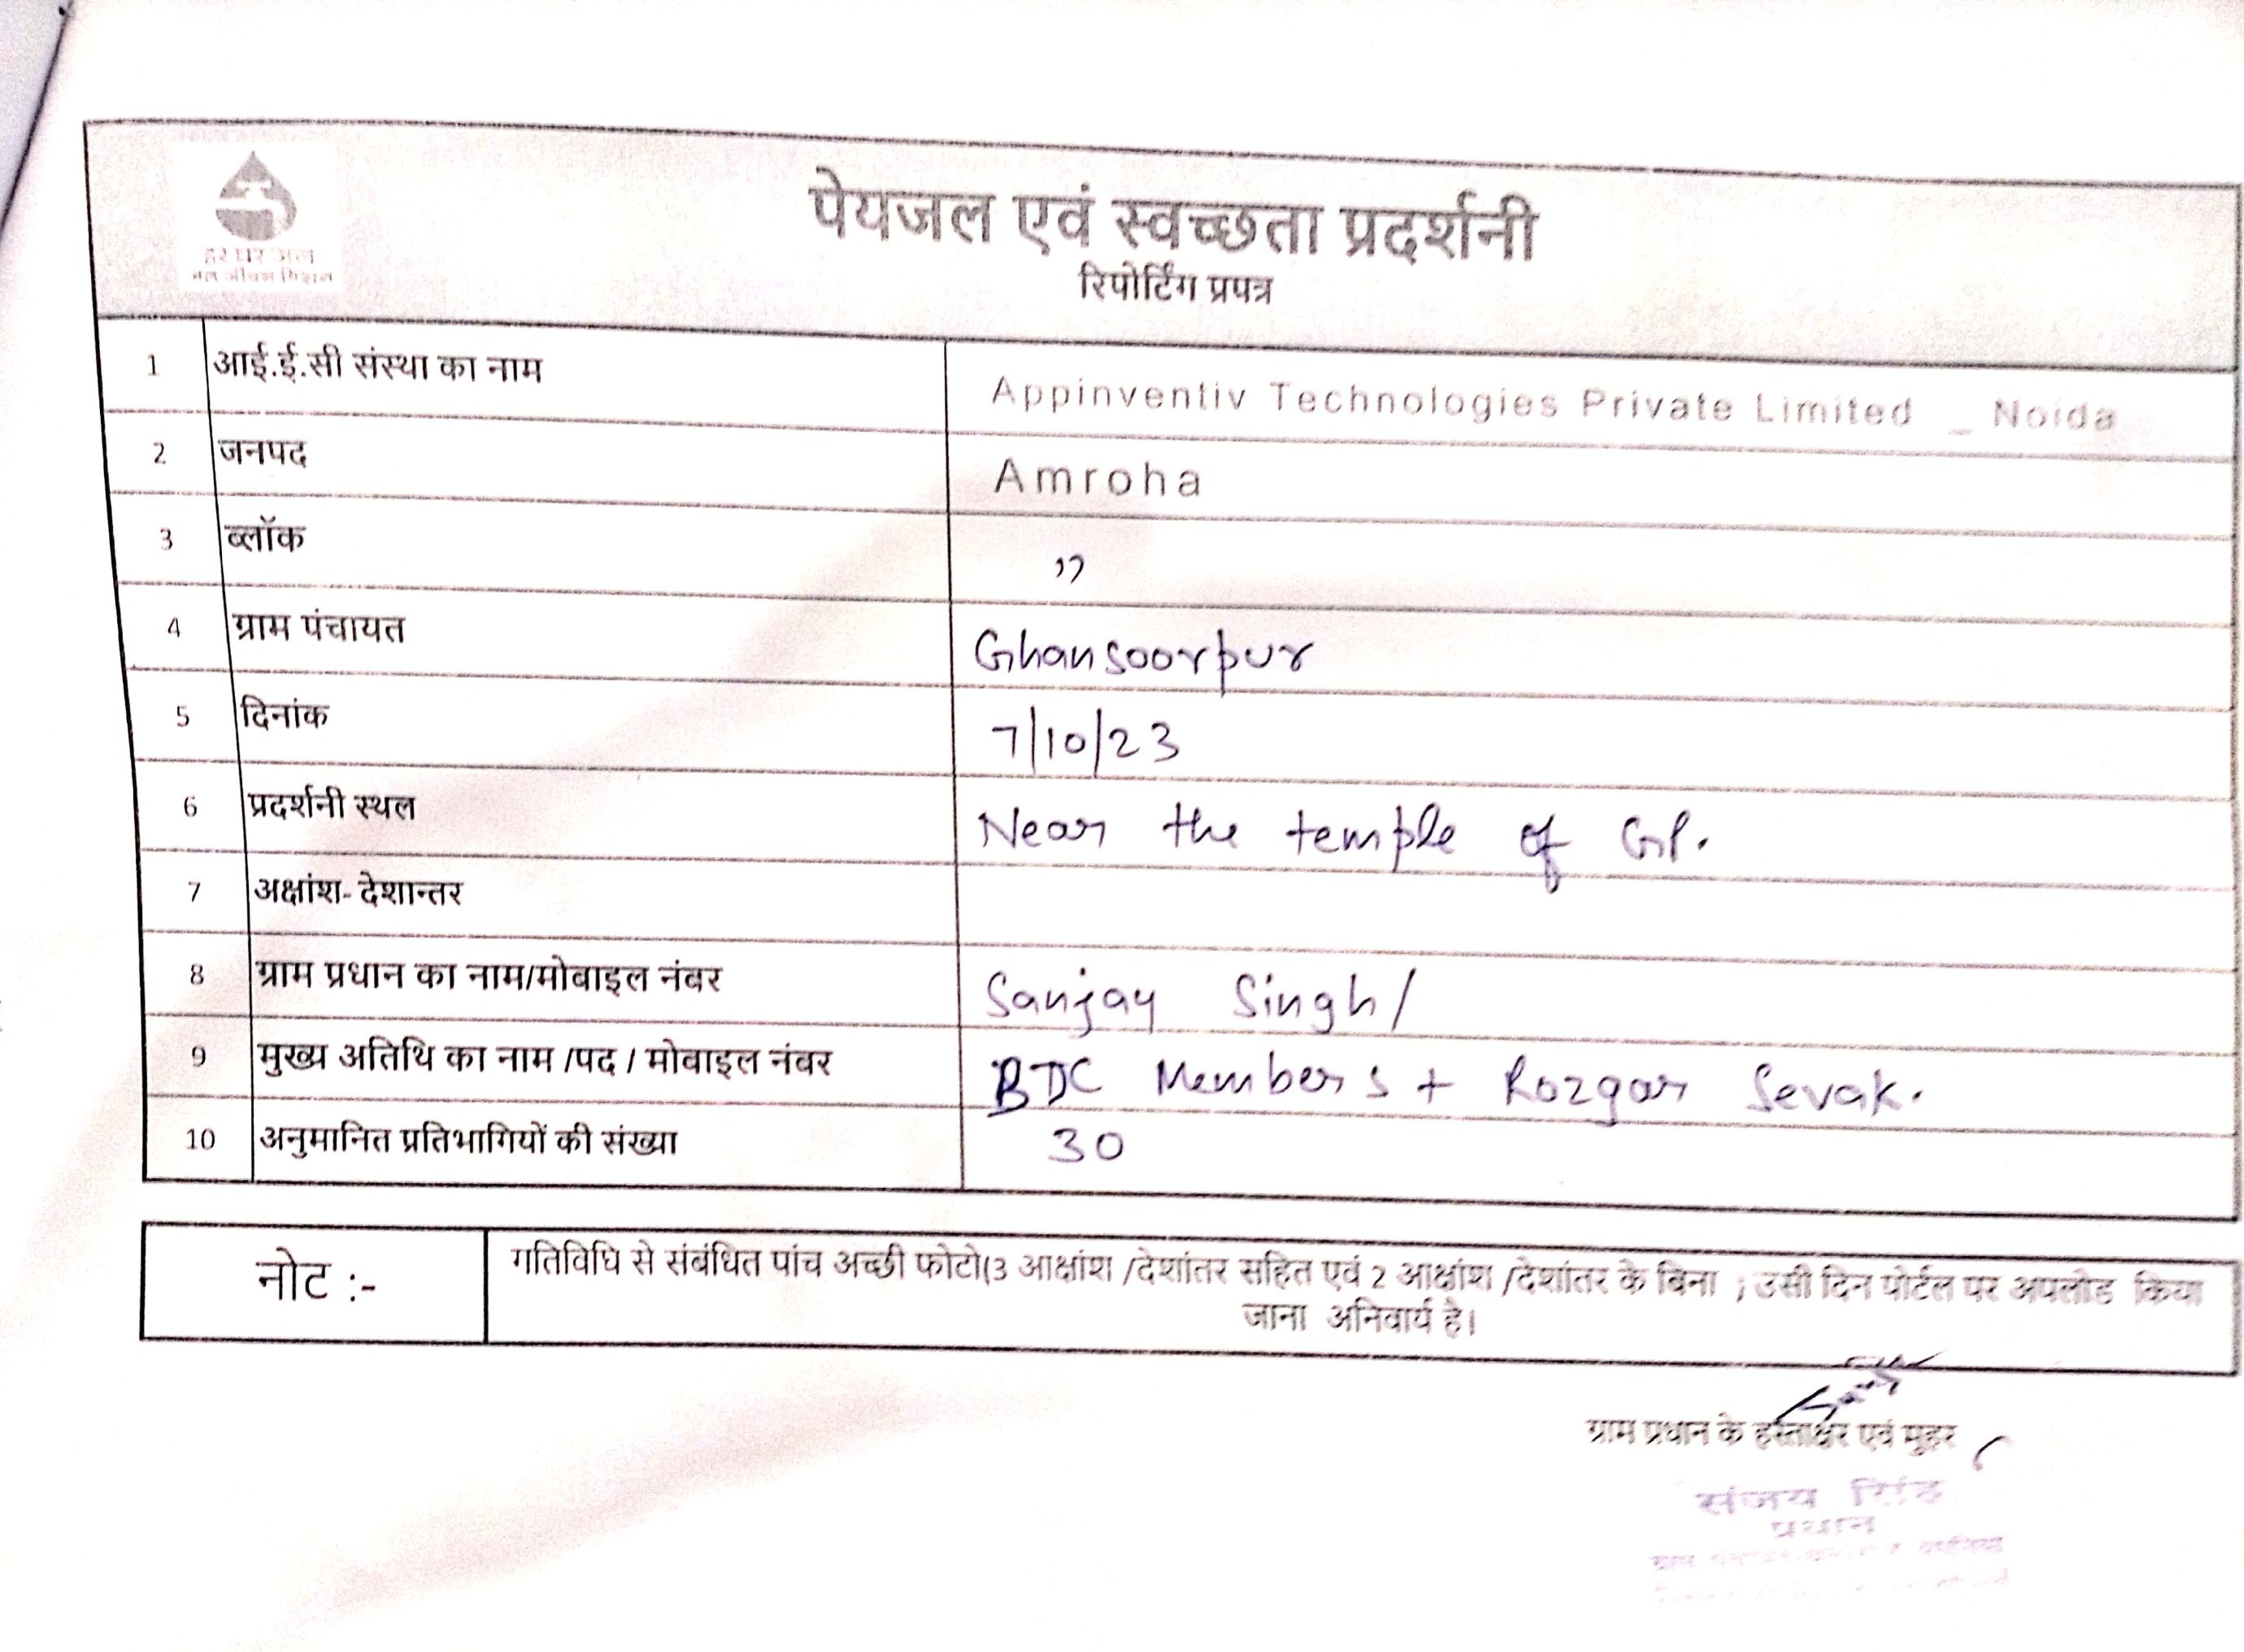 हर घर जल
जल जीवन मिशन
पेयजल एवं स्वच्छता प्रदर्शनी
रिपोर्टिंग प्रपत्र
1 आई.ई.सी संस्था का नाम Appinventiv Technologies Private Limited _ Noida
2 जनपद Amroha
3 ब्लॉक ,,
4 ग्राम पंचायत Ghansoorpur
5 दिनांक 7/10/23
6 प्रदर्शनी स्थल Near the temple of GP.
7 अक्षांश- देशान्तर
8 ग्राम प्रधान का नाम/मोबाइल नंबर Sanjay Singh/
9 मुख्य अतिथि का नाम /पद / मोबाइल नंबर BDC Members + Rozgar Sevak.
10 अनुमानित प्रतिभागियों की संख्या 30
नोट :- गतिविधि से संबंधित पांच अच्छी फोटो(3 आक्षांश /देशांतर सहित एवं 2 आक्षांश /देशांतर के बिना ; उसी दिन पोर्टल पर अपलोड किया
जाना अनिवार्य है।
ग्राम प्रधान के हस्ताक्षर एवं मुहर
संजय सिंह
प्रधान